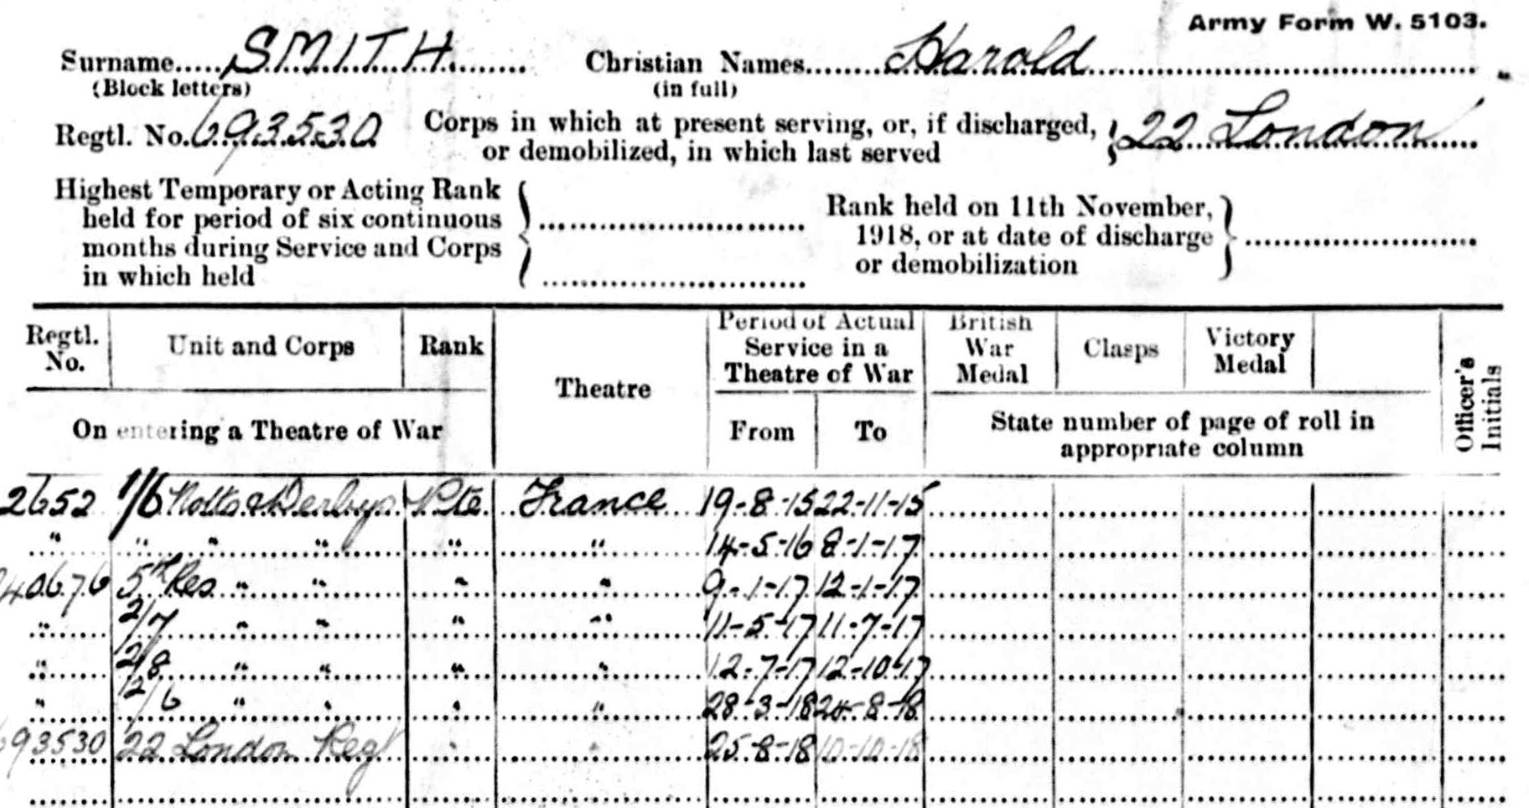 Army Form W. 5103.
Surname..... SMITH ........ Christian Names....... Harold
(Block letters) (in full)
Regtl. No. 693530 Corps in which at present serving, or, if discharged, or demobilized, in which last served } 22 London
Highest Temporary or Acting Rank held for period of six continuous months during Service and Corps in which held
Rank held on 11th November, 1918, or at date of discharge or demobilization
Regtl. No. Unit and Corps Rank Theatre Period of Actual Service in a Theatre of War British War Medal Clasps Victory Medal Officer's Initials
On entering a Theatre of War From To State number of page of roll in appropriate column
2652 1/6 Notts & Derbys Pte. France 19-8-15 22-11-15
" " " " " " 14-5-16 8-1-17
240676 5th Res " " " " 9-1-17 12-1-17
" 2/7 " " " " 11-5-17 11-7-17
" 2/8 " " " " 12-7-17 12-10-17
" 2/6 " " " " 28-3-18 24-8-18
693530 22 London Regt " " 25-8-18 10-10-18